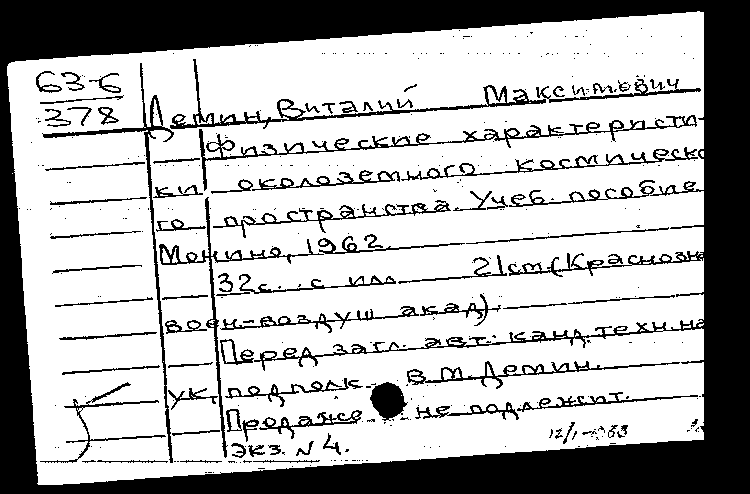 63-6
378
Демин, Виталий Максимевич
Физические характеристи-
ки околоземного космическо
го пространства. Учеб. пособие
Монино, 1962.
32с. с илл 21cm (Краснозн
воен-воздуш акад).
Перед загл. авт.: канд. техн. на
ук, подполк. В.М. Демин.
Продаже не подлежит.
Экз. N 4.
12/I-1963